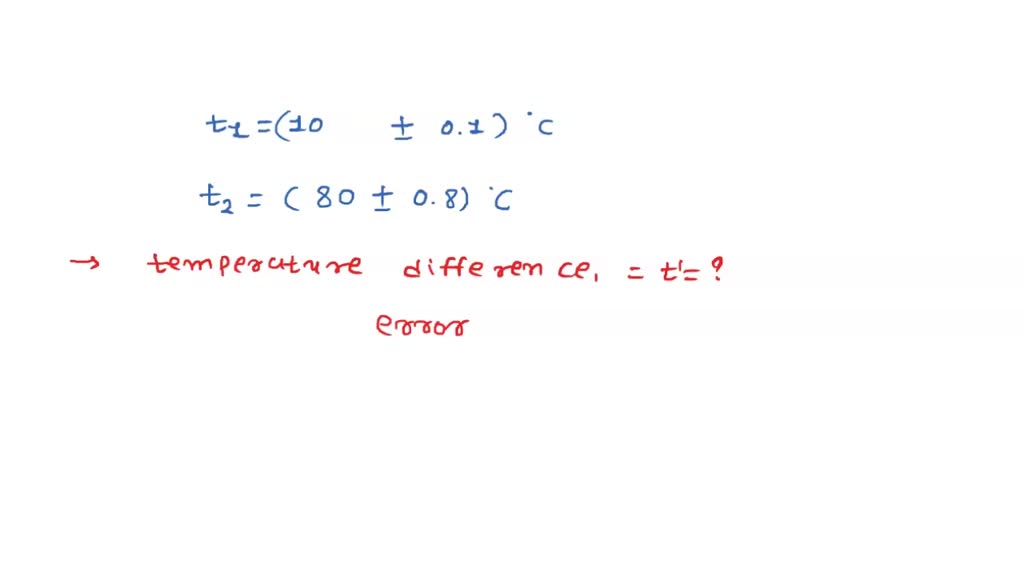 t₁ = (10 ± 0.1) °C
t₂ = (80 ± 0.8) °C
→ temperature difference, = t' = ?
error